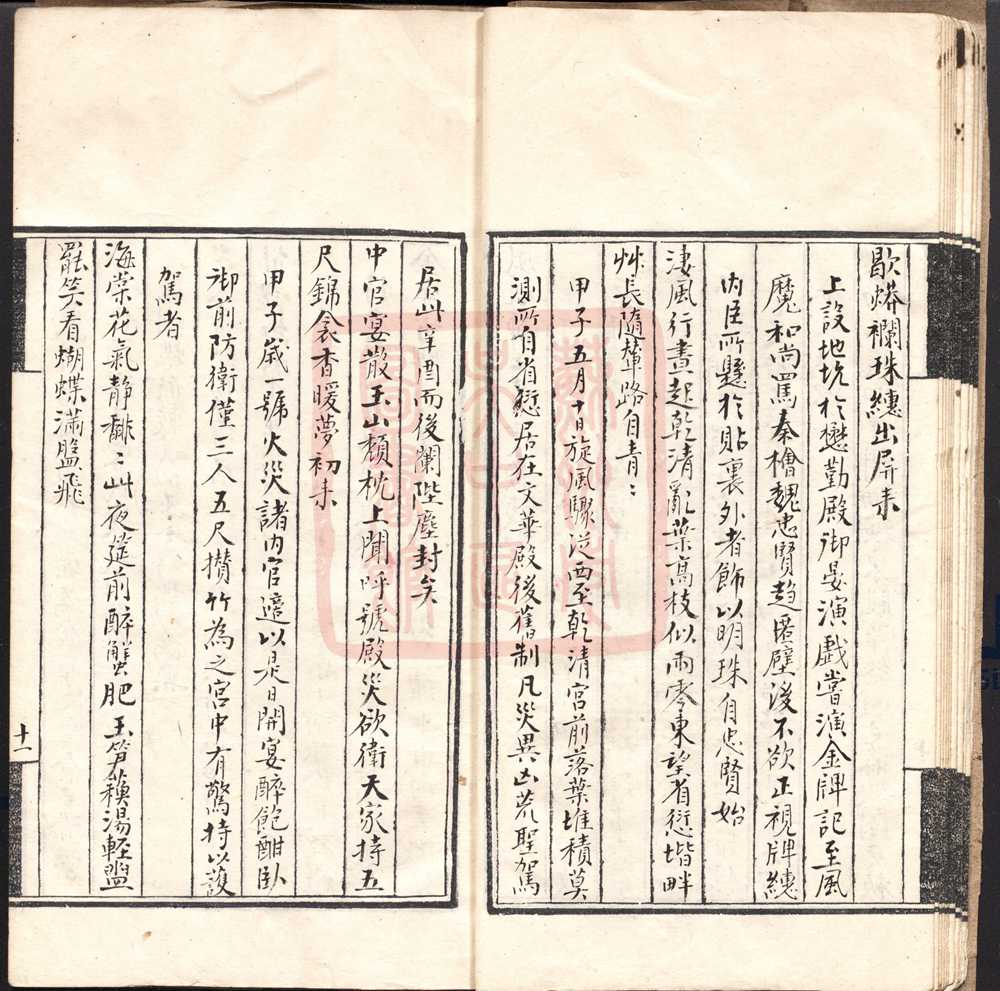 歇蟒襴珠繐出屏来
上設地坑於懋勤殿御晏演戲嘗演金牌記至風
魔和尚罵秦檜魏忠賢趋匿壁後不欲正視牌繐
内臣所懸於貼裏外者飾以明珠自忠賢始
淒風行晝起乾清亂葉高枝似雨零東望省愆堦畔
艸長隨輦路自青〻
甲子五月十日旋風驟從西至乾清宫前落葉堆積莫
測所自省愆居在文華殿後舊制凡災異凶荒聖駕
居此辛酉而後闌陛塵封矣
中官宴散玉山頹枕上聞呼號殿災欲衛天家持五
尺錦衾香暖夢初来
甲子歲一號火災諸内官適以是日開宴醉飽酣臥
御前防衛僅三人五尺攢竹為之宫中有驚持以護
駕者
海棠花氣静馡〻此夜筵前醉蟹肥玉笋蘓湯輕盥
罷笑看蝴蝶滿盤飛
十一